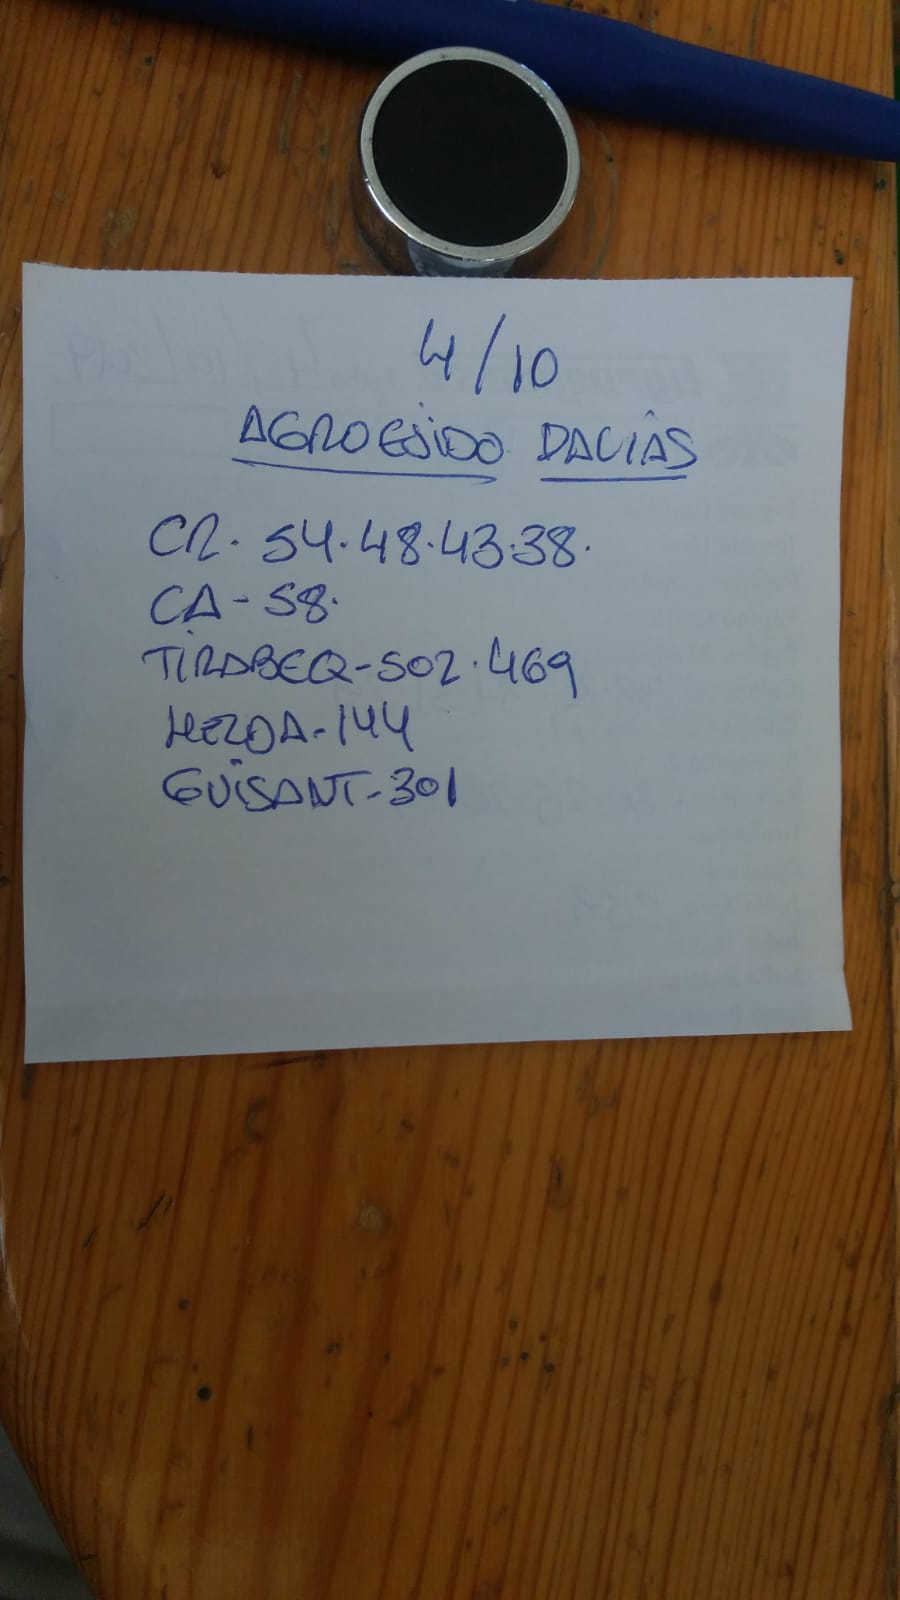 4/10
AGROEJIDO DALÍAS
CR. 54.48.43.38.
CA-58.
TIRABEQ-502.469
MERDA-144
GUISANT-301
4/10/2019